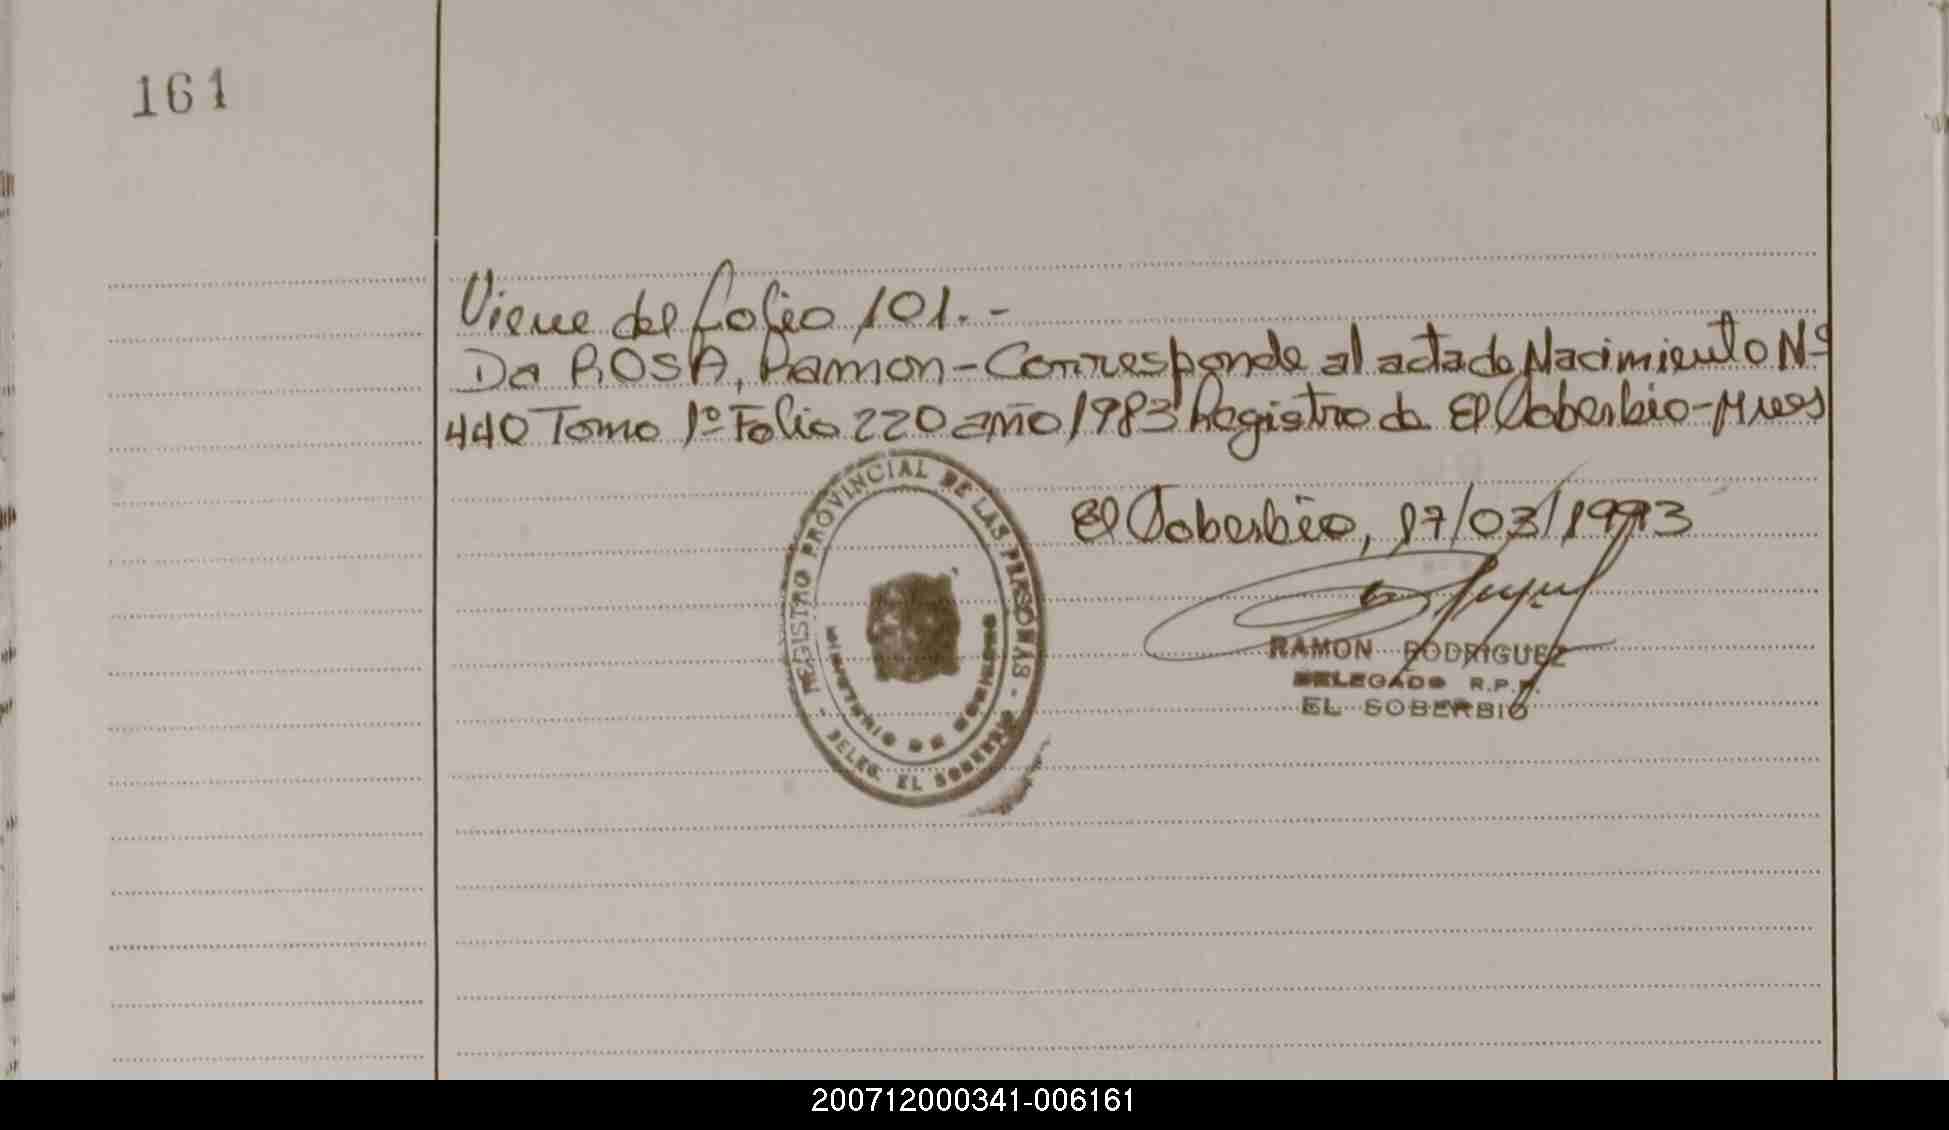 161
Viene del folio 101.-
Da ROSA, Ramon - Corresponde al acta de Nacimiento Nº
440 Tomo 1º Folio 220 año 1983 Registro de El Soberbio - Mnes
El Soberbio, 17/03/1993
REGISTRO PROVINCIAL DE LAS PERSONAS -
MINISTERIO DE GOBIERNO
- DELEG. EL SOBERBIO
RAMON RODRIGUEZ
DELEGADO R.P.P.
EL SOBERBIO
200712000341-006161